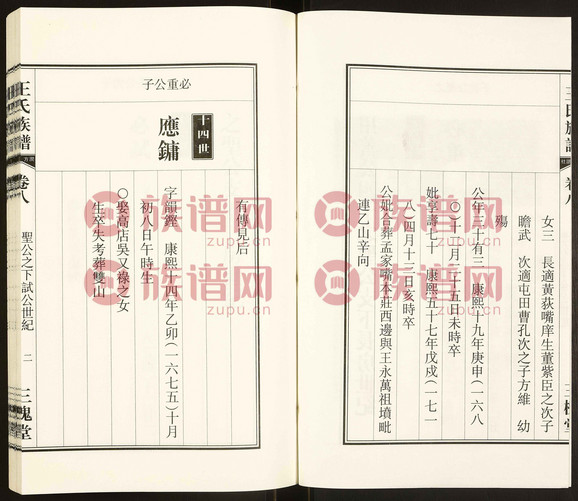 王氏族譜
卷八
女三 長適黃荻嘴庠生董紫臣之次子
瞻武 次適屯田曹孔次之子方維 幼
殤
公年三十有三 康熙十九年庚申(一六八
〇)十二月二十五日未時卒
妣享壽七十 康熙五十七年戊戌(一七一
八)四月十二日亥時卒
公妣合葬孟家嘴本莊西邊與王永萬祖墳毗
連乙山辛向
三槐堂
必重公子
十四世
應鏞
有傳見后
字韻鏗 康熙十四年乙卯(一六七五)十月
初八日午時生
○娶高店吳又祿之女
生卒失考葬雙山
王氏族譜
卷八
聖公之下試公世紀
二
三槐堂
族谱网
zupu.cn
族谱网
zupu.cn
族谱网
zupu.cn
族谱网
zupu.cn